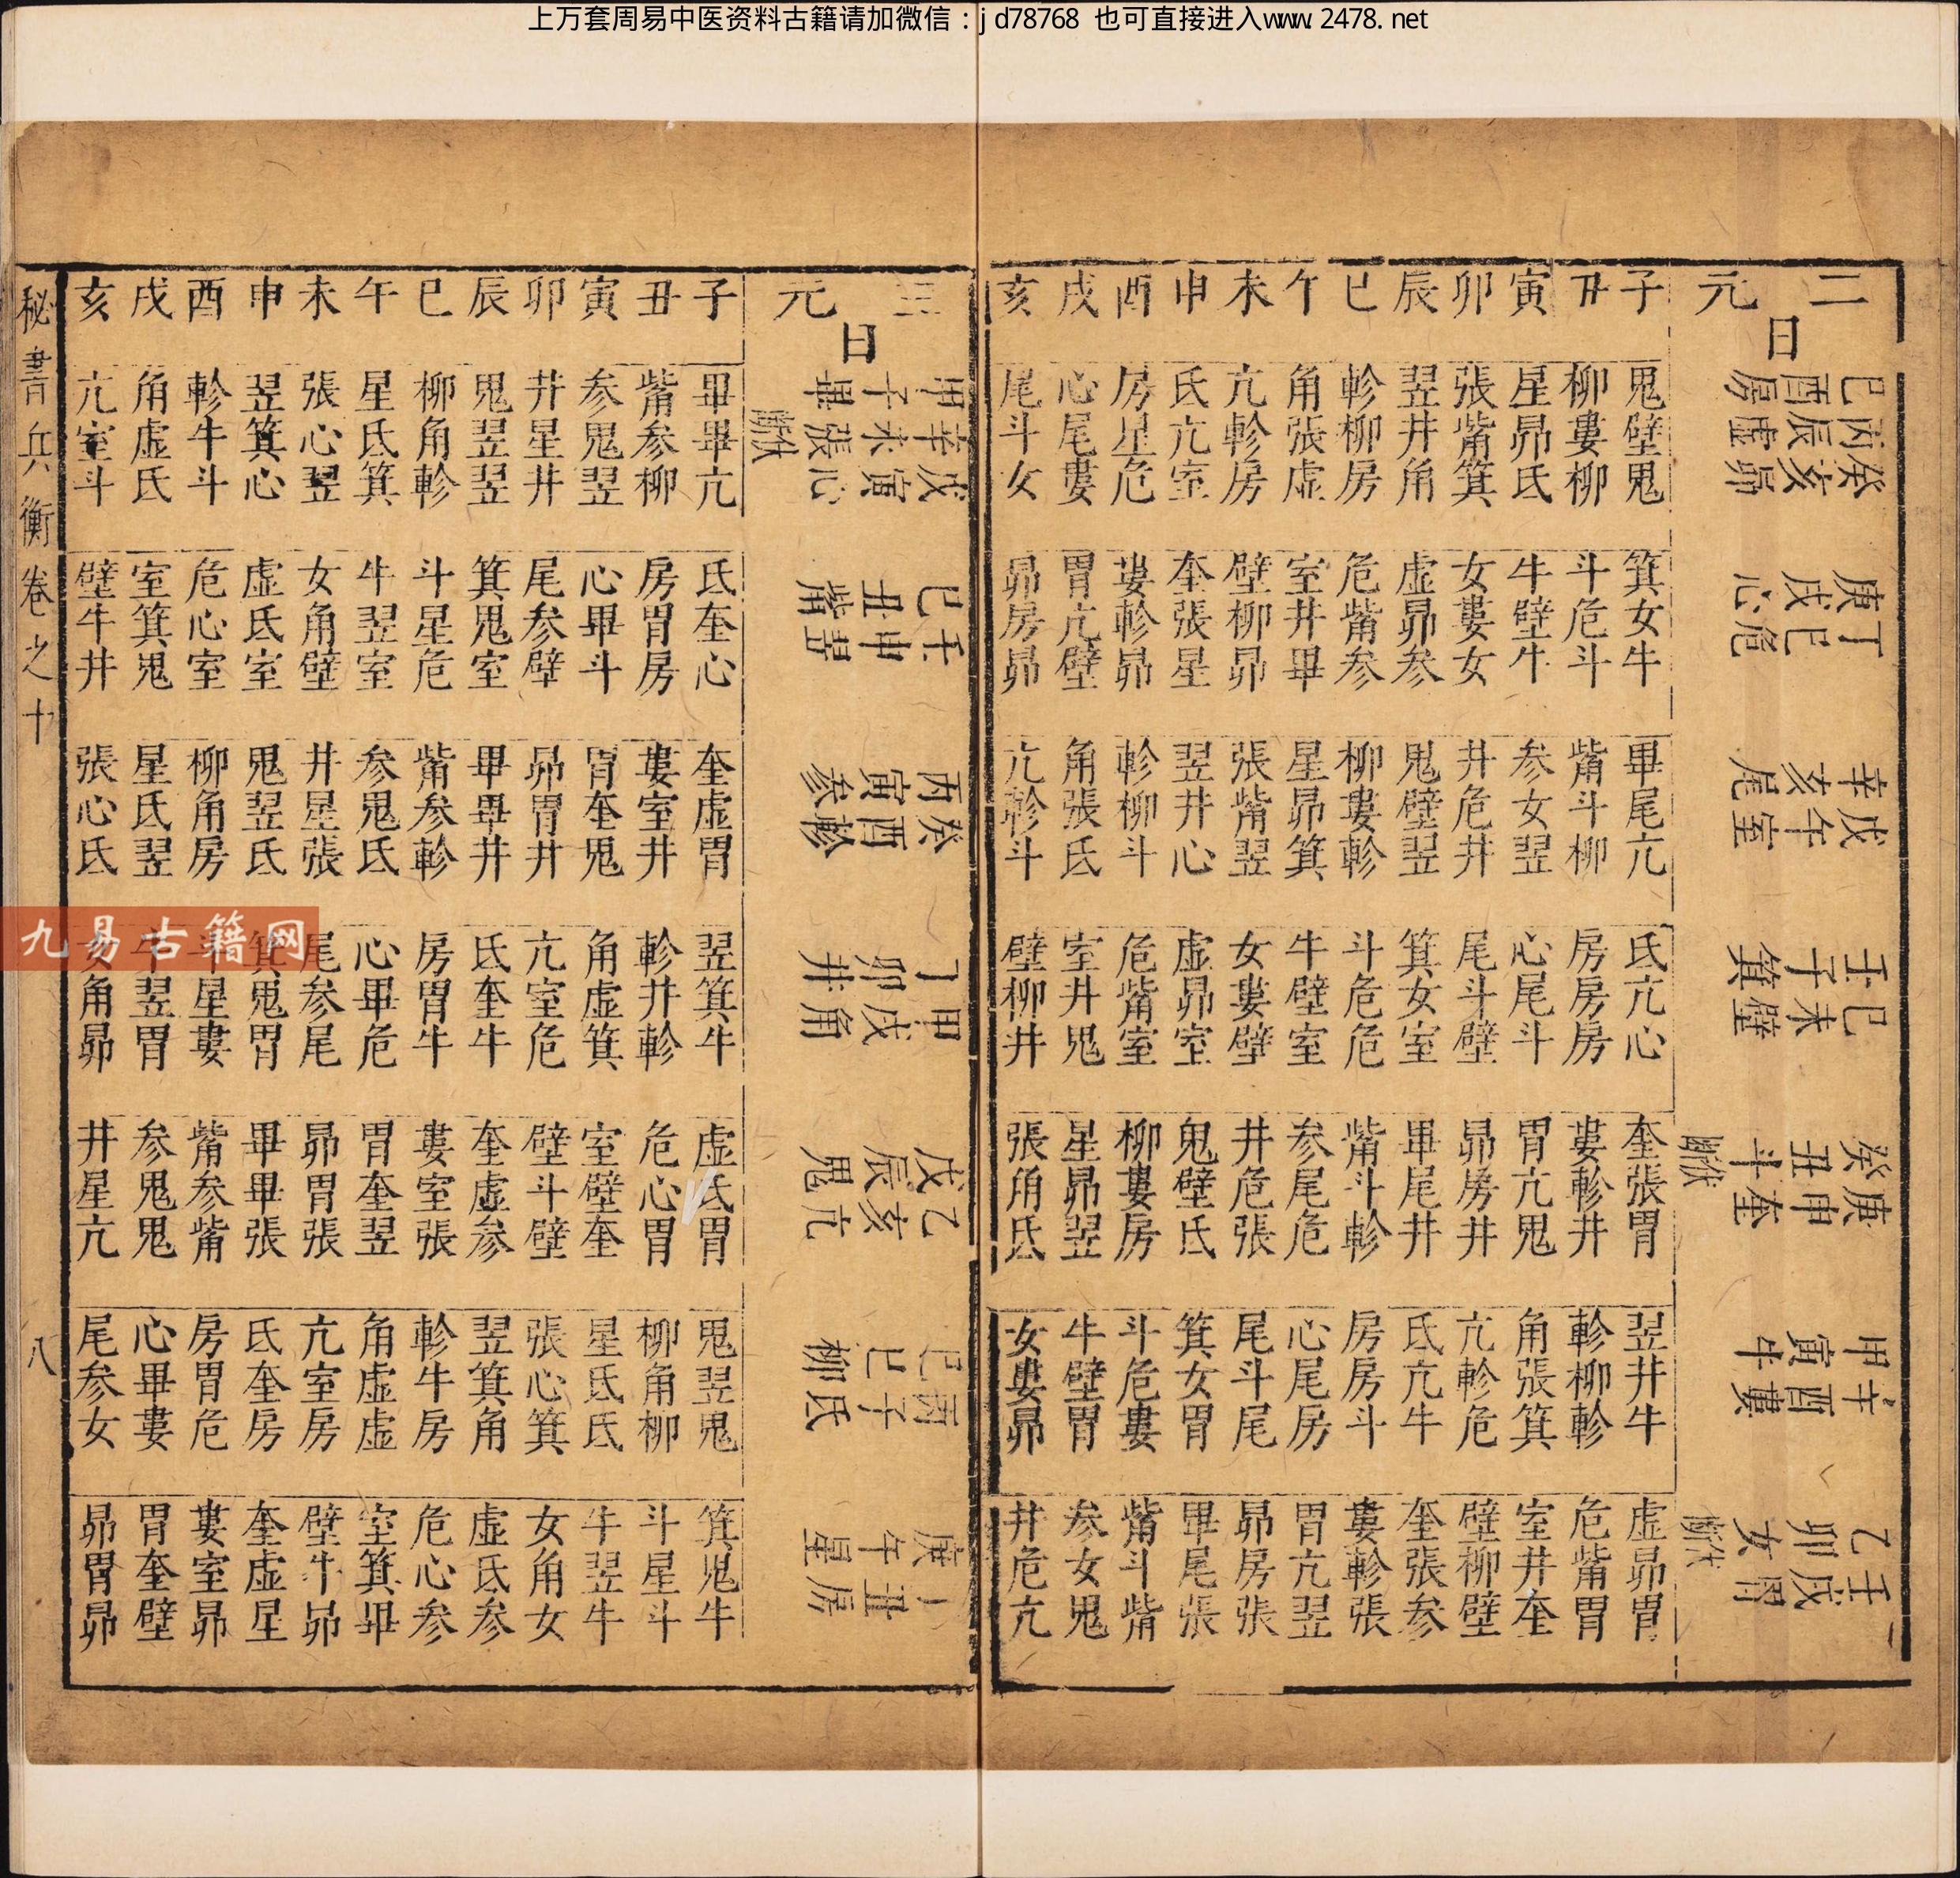 上万套周易中医资料古籍请加微信：jd78768 也可直接进入www.2478.net
二元
日
巳酉房 丙辰虛 癸亥昴
庚戌心 丁巳危
辛亥尾 戊午室
壬子箕 巳未壁
癸丑斗 庚申奎 伏断
甲寅牛 辛酉婁
乙卯女 壬戌胃 伏断
子 鬼壁鬼 箕女牛 畢尾亢 氐亢心 奎張胃 翌井牛 虛昴胃
丑 柳婁柳 斗危斗 觜斗柳 房房房 婁軫井 軫柳軫 危觜胃
寅 星昴氐 牛壁牛 参女翌 心尾斗 胃亢鬼 角張箕 室井奎
卯 張觜箕 女婁女 井危井 尾斗壁 昴房井 亢軫危 壁柳壁
辰 翌井角 虛昴参 鬼壁翌 箕女室 畢尾井 氐亢牛 奎張参
巳 軫柳房 危觜参 柳婁軫 斗危危 觜斗軫 房房斗 婁軫張
午 角張虛 室井畢 星昴箕 牛壁室 参尾危 心尾房 胃亢翌
未 亢軫房 壁柳昴 張觜翌 女婁壁 井危張 尾斗尾 昴房張
申 氐亢室 奎張星 翌井心 虛昴室 鬼壁氐 箕女胃 畢尾張
酉 房星危 婁軫昴 軫柳斗 危觜室 柳婁房 斗危婁 觜斗觜
戌 心尾婁 胃亢壁 角張氐 室井鬼 星昴翌 牛壁胃 参女鬼
亥 尾斗女 昴房昴 亢軫斗 壁柳井 張角氐 女婁昴 井危亢
三元
日
甲子畢 辛未張 戊寅心 伏断
巳丑觜 壬申翌
丙寅参 癸酉軫
丁卯井 甲戌角
戊辰鬼 乙亥亢
巳巳柳 丙子氐
庚午星 丁丑房
子 畢畢亢 氐奎心 奎虛胃 翌箕牛 虛氐胃 鬼翌鬼 箕鬼牛
丑 觜参柳 房胃房 婁室井 軫井軫 危心胃 柳角柳 斗星斗
寅 参鬼翌 心畢斗 胃奎鬼 角虛箕 室壁奎 星氐氐 牛翌牛
卯 井星井 尾参壁 昴胃井 亢室危 壁斗壁 張心箕 女角女
辰 鬼翌翌 箕鬼室 畢畢井 氐奎牛 奎虛参 翌箕角 虛氐参
巳 柳角軫 斗星危 觜参軫 房胃牛 婁室張 軫牛房 危心参
午 星氐箕 牛翌室 参鬼氐 心畢危 胃奎翌 角虛虛 室箕畢
未 張心翌 女角壁 井星張 尾参尾 昴胃張 亢室房 壁牛昴
申 翌箕心 虛氐室 鬼翌氐 箕鬼胃 畢畢張 氐奎房 奎虛星
酉 軫牛斗 危心室 柳角房 斗星婁 觜参觜 房胃危 婁室昴
戌 角虛氐 室箕鬼 星氐翌 牛翌胃 参鬼鬼 心畢婁 胃奎壁
亥 亢室斗 壁牛井 張心氐 女角昴 井星亢 尾参女 昴胃昴
秘書兵衡卷之十 八
九易古籍网